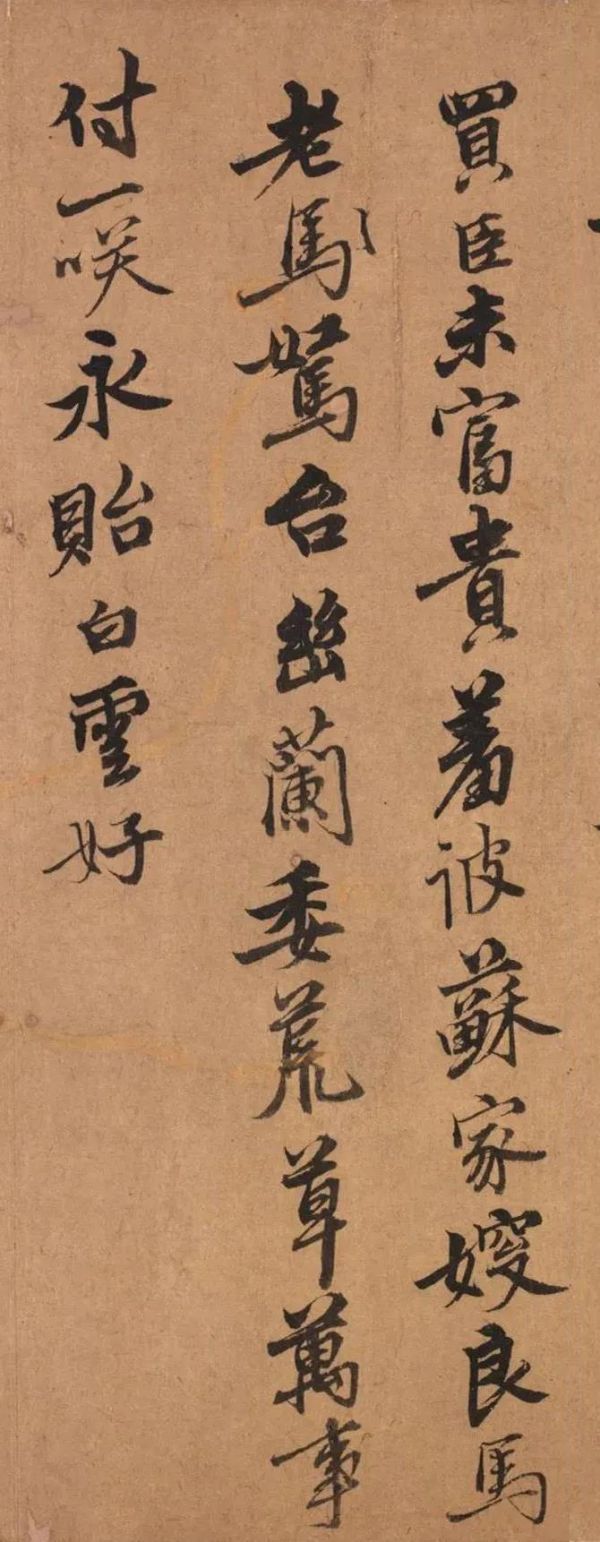 買臣未富貴羞彼蘇家嫂良馬
老馬駑台幽蘭委荒草萬事
付一咲永貽白雲好